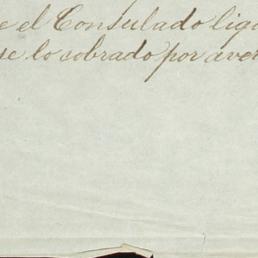 e el Consulado liqu
se lo cobrado por aver